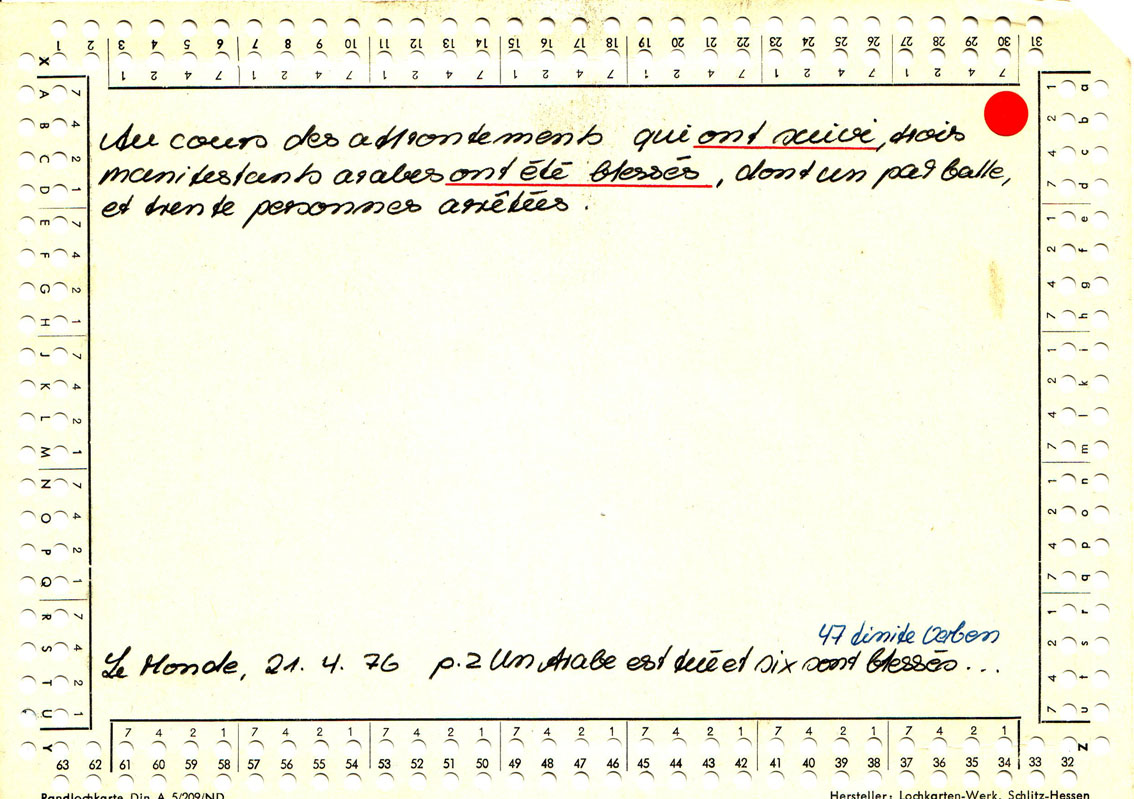 1 2 3 4 5 6 7 8 9 10 11 12 13 14 15 16 17 18 19 20 21 22 23 24 25 26 27 28 29 30 31
1 2 4 7 1 2 4 7 1 2 4 7 1 2 4 7 1 2 4 7 1 2 4 7 1 2 4 7
X
A 7 B 4 C 2 D 1 E 7 F 4 G 2 H 1 J 7 K 4 L 2 M 1 N 7 O 4 P 2 Q 1 R 7 S 4 T 2 U 1
Y
Au cours des affrontements qui ont suivi, trois
manifestants arabes ont été blessés, dont un par balle,
et trente personnes arrêtées.
47 finite Verben
Le Monde, 21. 4. 76 p.2 Un Arabe est tué et six sont blessés...
1 a 2 b 4 c 7 d 1 e 2 f 4 g 7 h 1 i 2 k 4 l 7 m 1 n 2 o 4 p 7 q 1 r 2 s 4 t 7 u
Z
7 4 2 1 7 4 2 1 7 4 2 1 7 4 2 1 7 4 2 1 7 4 2 1 7 4 2 1
63 62 61 60 59 58 57 56 55 54 53 52 51 50 49 48 47 46 45 44 43 42 41 40 39 38 37 36 35 34 33 32
Randlochkarte Din A 5/209/ND
Hersteller: Lochkarten-Werk, Schlitz-Hessen